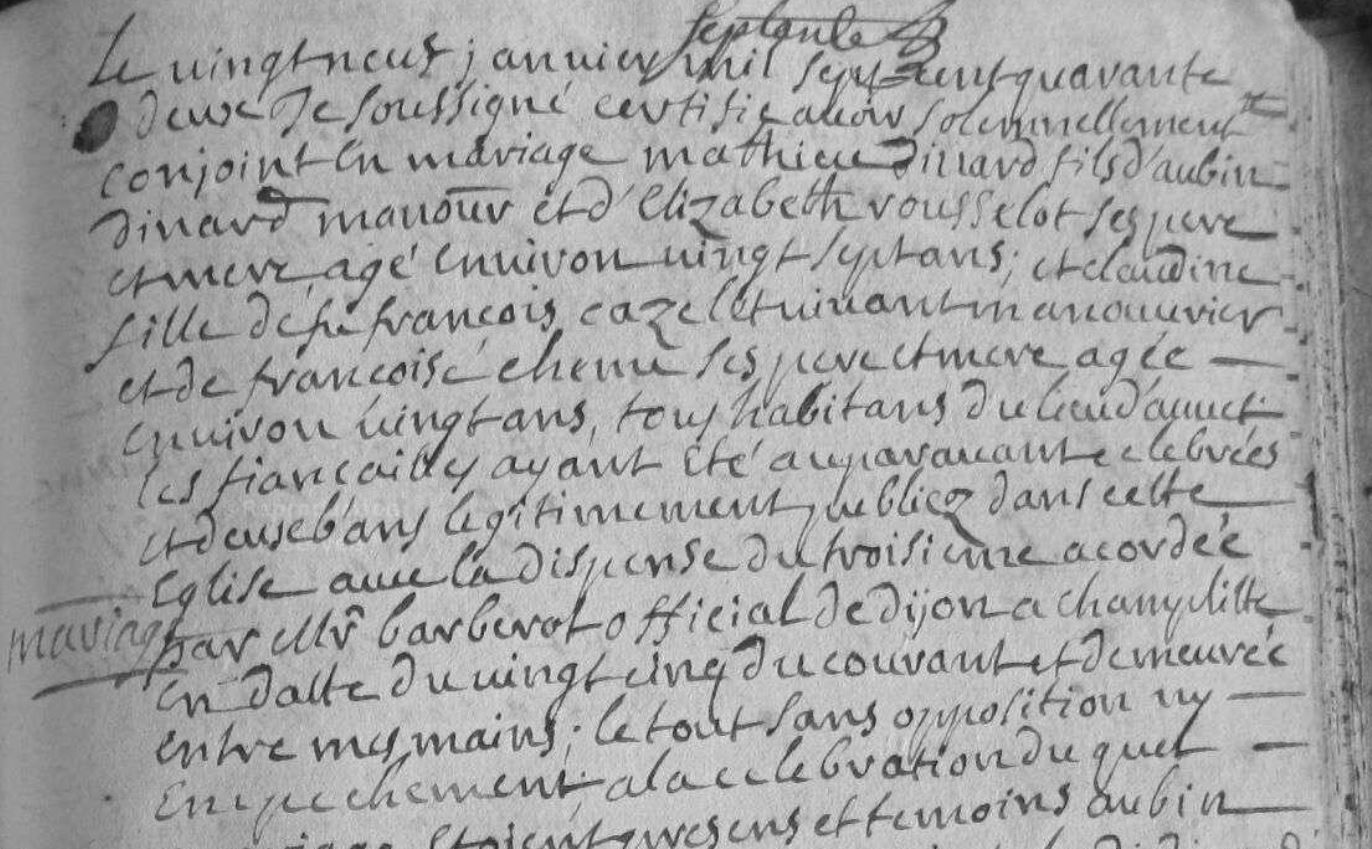 Le vingt neuf janvier mil sept cent quarante
deux Je soussigné certifie avoir solemnellement
conjoint en mariage mathieu dinard fils d'aubin
dinard manour et d'Elizabeth rousselot ses pere
et mere, agé environ vingt sept ans; et claudine
fille de fû françois cazelet vivant manouvrier
et de françoise chemé ses pere et mere agée
environ vingt ans, tous habitans du lieu
les fiançailles ayant été auparavant celebrées
et deux bans legitimement publiez dans cette
Eglise avec la dispense du troisieme acordée
mariage
par Mr barberot official de dijon a champlitte
en datte du vingt cinq du courant et demeurée
entre mes mains; le tout sans opposition ny
Empechement; a la celebration du quel
etoient presens et temoins aubin